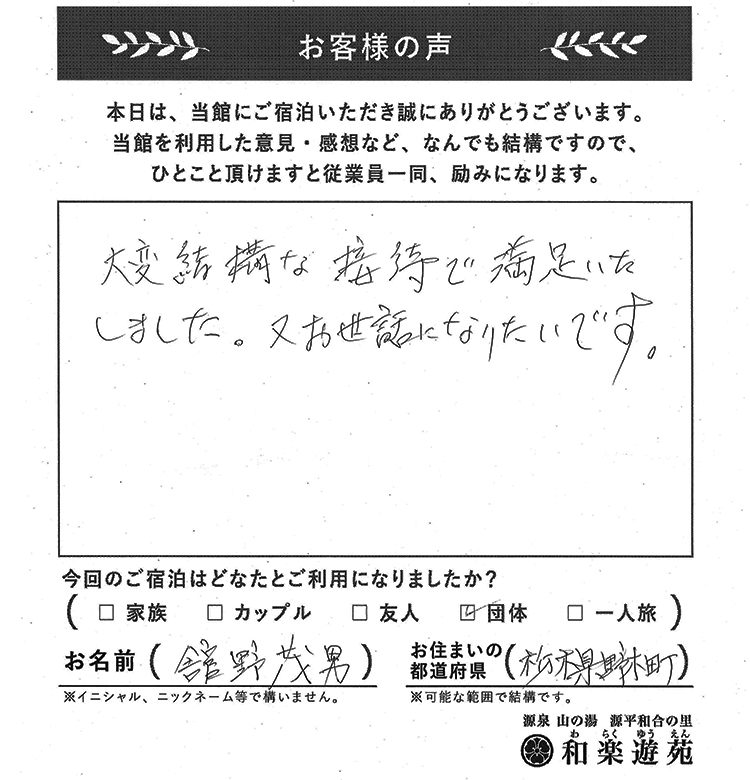 お客様の声
本日は、当館にご宿泊いただき誠にありがとうございます。
当館を利用した意見・感想など、なんでも結構ですので、
ひとこと頂けますと従業員一同、励みになります。
大変結構な接待で満足いた
しました。又お世話になりたいです。
今回のご宿泊はどなたとご利用になりましたか?
( □ 家族 □ カップル □ 友人 ☑ 団体 □ 一人旅 )
お名前 ( 舘野茂男 )
※イニシャル、ニックネーム等で構いません。
お住まいの都道府県 ( 栃木県野木町 )
※可能な範囲で結構です。
源泉 山の湯 源平和合の里
わ らく ゆう えん
和楽遊苑